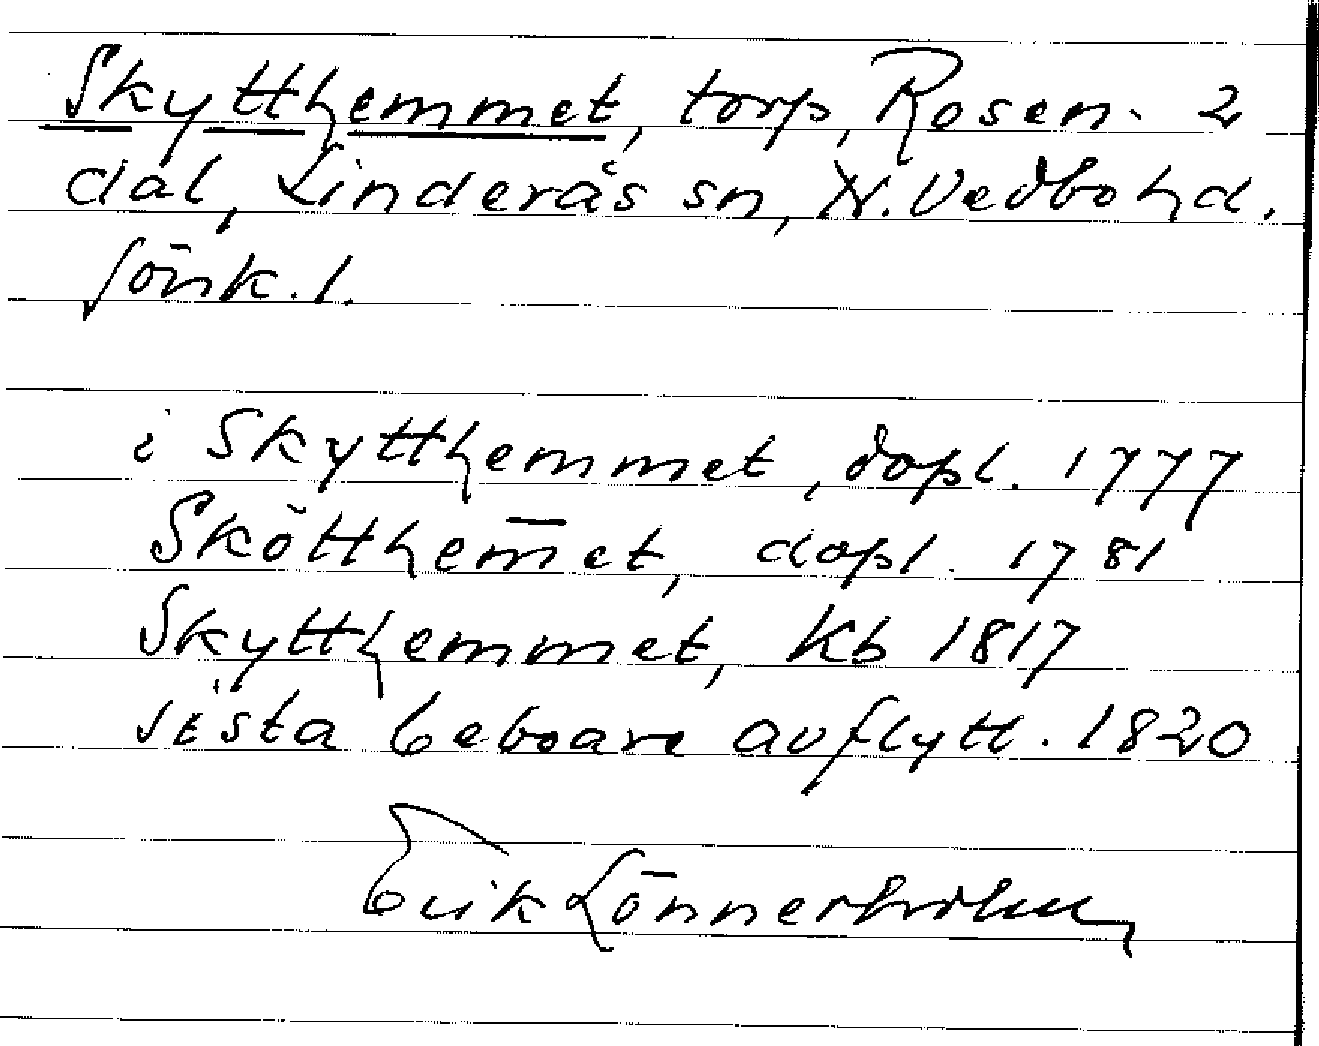 Skytthemmet, torp, Rosen- 2
dal, Linderås sn, N. Vedbo hd.
Jönk. l.
i Skytthemmet, dopl. 1777
Skötthem̅et, dopl. 1781
Skytthemmet, kb 1817
sista beboare avflytt. 1820
Erik Lönnerholm